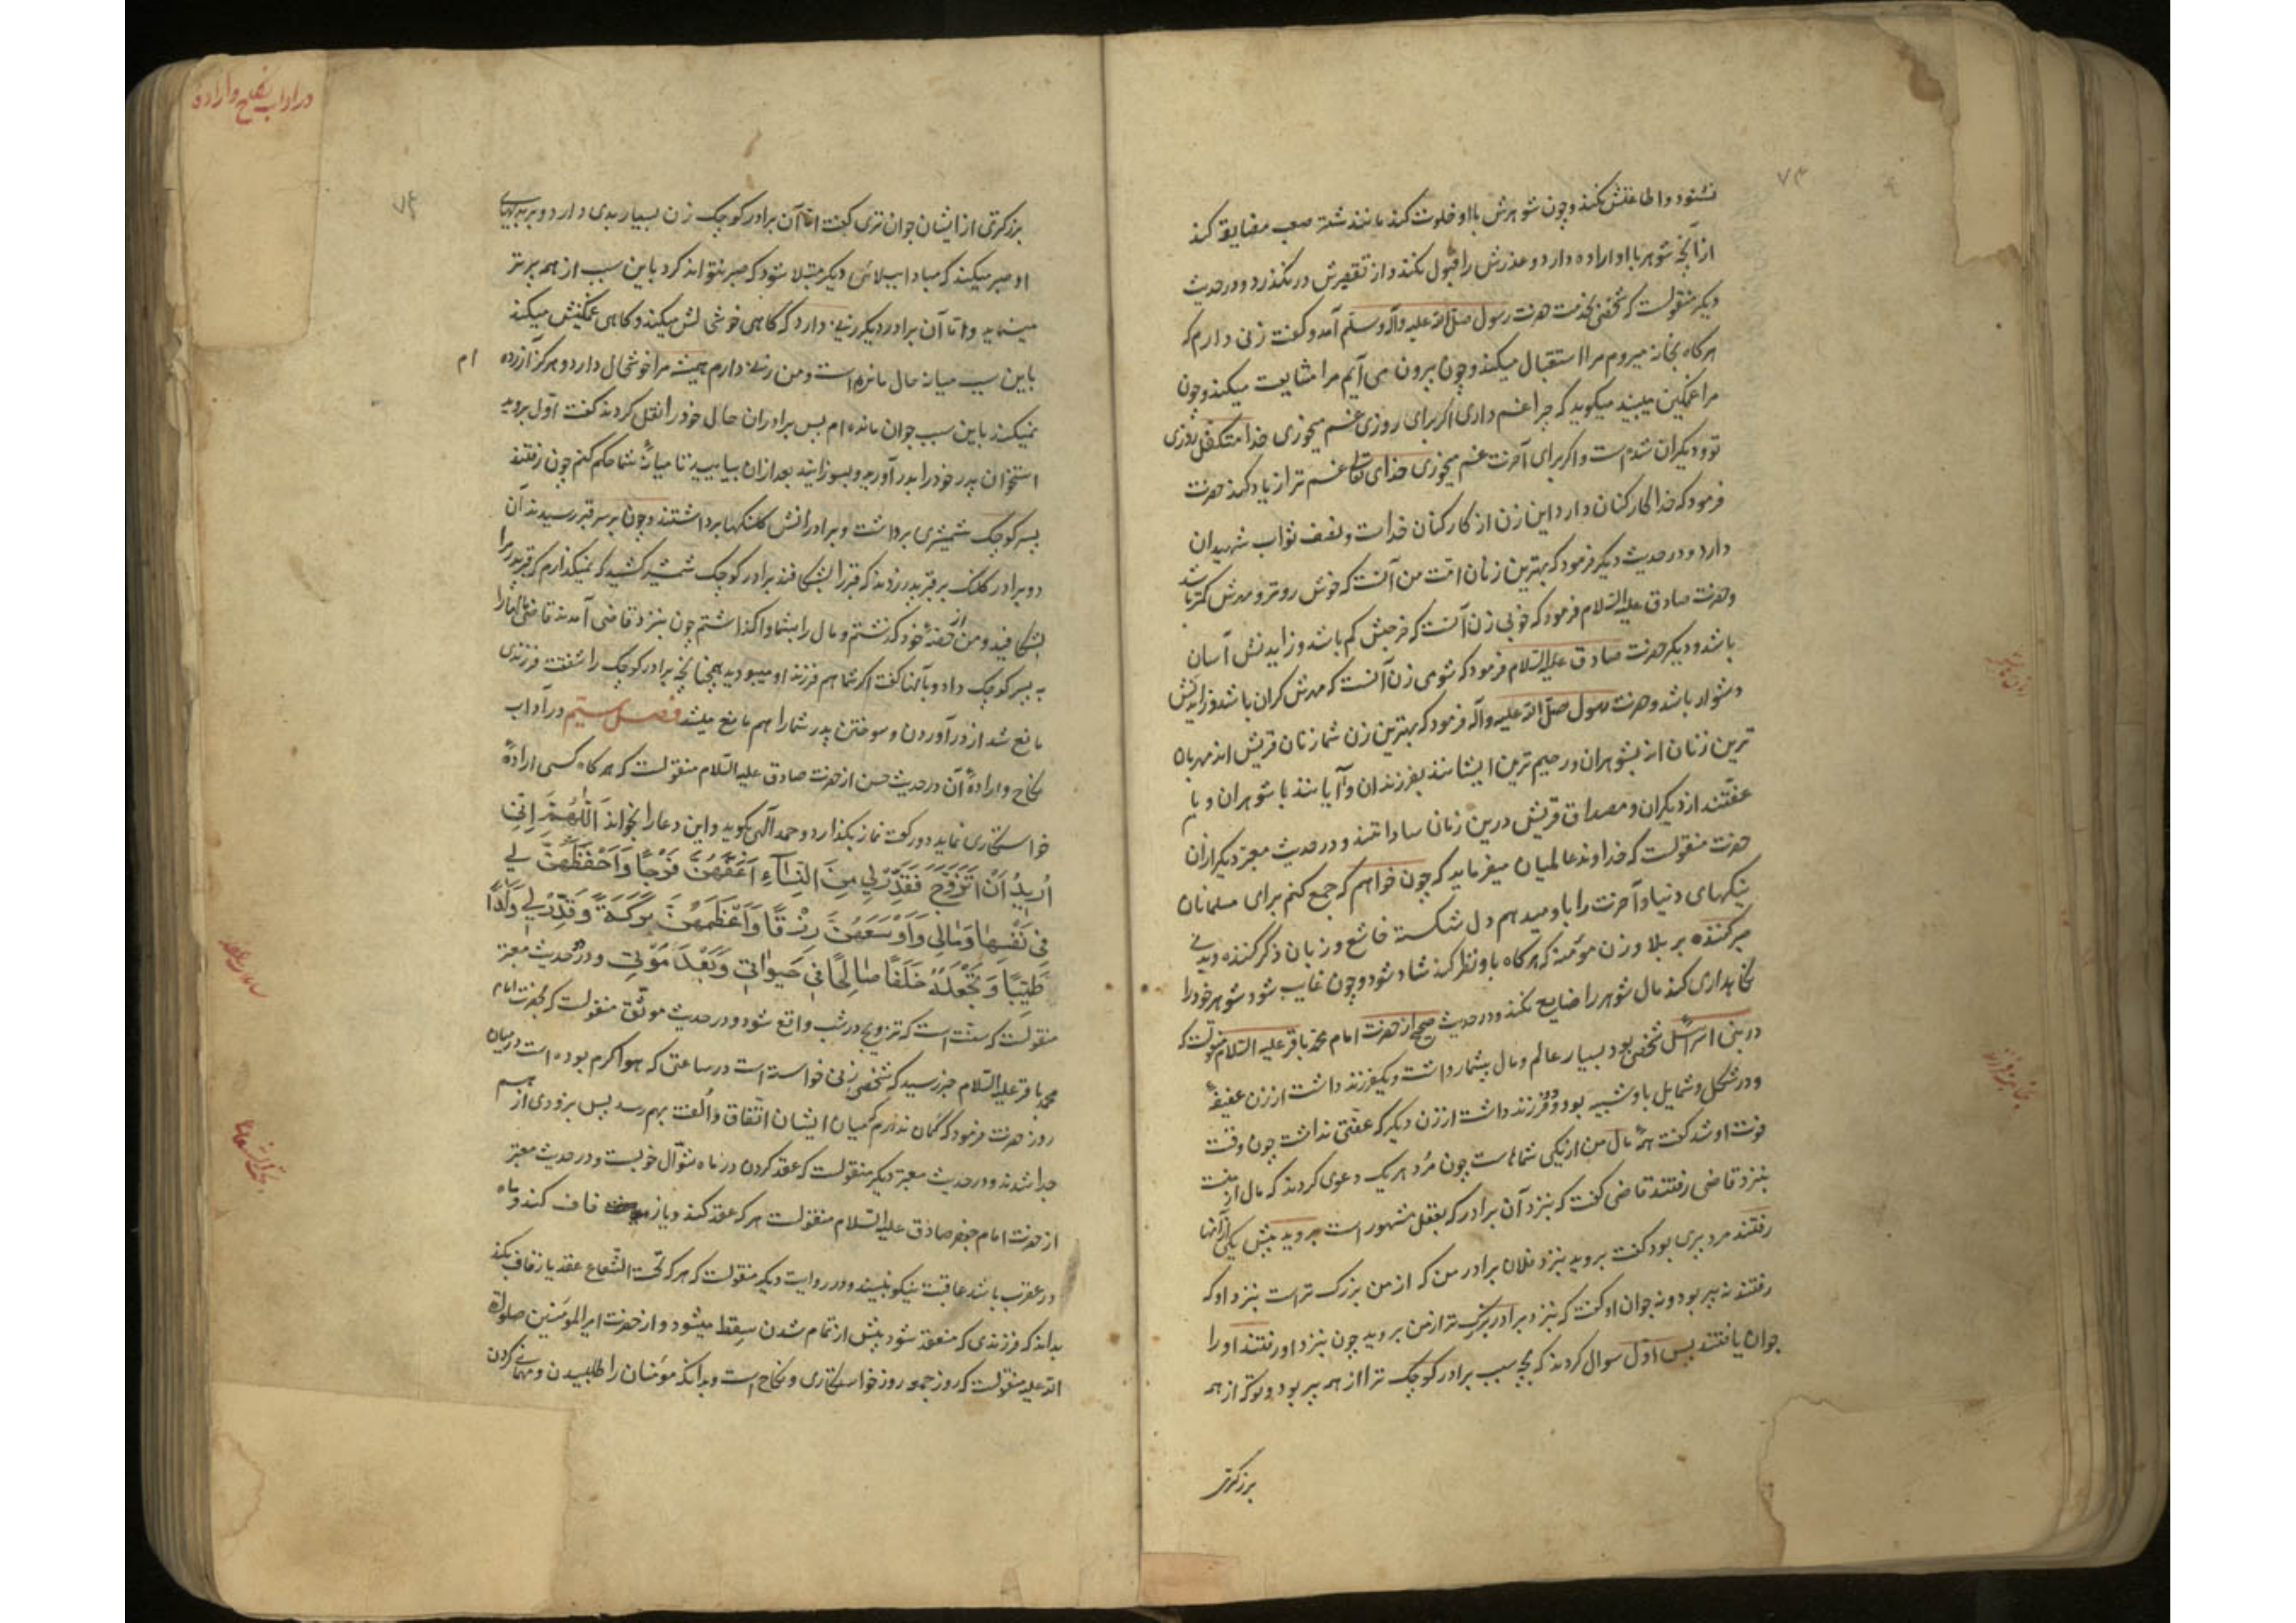 ۷۳
نشنود و اطاعتش نکند و چون شوهرش با او خلوت کند مانند شتر صعب مضایقه کند
از آنچه شوهر با او اراده دارد و عذرش را قبول نکند و از تقصیرش در نکذرد و در حدیث
دیکر منقولست که شخصی بخدمت حضرت رسول صلی الله علیه وآله وسلم آمد و کفت زنی دارم که
هرکاه بخانه میروم مرا استقبال میکند و چون بیرون می آیم مرا مشایعت میکند و چون
مرا غمکین میبیند میکوید که چرا غم داری اکر برای روزی غم میخوری خدا متکفل روزی
تو و دیکران شده است و اکر برای آخرت غم میخوری خدای تعالی غم ترا زیاد کند حضرت
فرمود که خدا کارکنان دارد این زن از کارکنان خداست و نصف ثواب شهیدان
دارد و در حدیث دیکر فرمود که بهترین زنان امت من آنست که خوش روتر و مهرش کمتر باشد
و حضرت صادق علیه السلام فرمود که خوبی زن آنست که خرجش کم باشد و زایدنش آسان
باشد و دیکر حضرت صادق علیه السلام فرمود که شومی زن آنست که مهرش کران باشد و زایدنش
دشوار باشد و حضرت رسول صلی الله علیه وآله فرمود که بهترین زن شما زنان قریش اند مهربان
ترین زنان از بشوهران و رحیم ترین ایشانند بفرزندان و آیانند با شوهران و با
عفتند از دیکران و مصداق قریش درین زمان ساداتند و در حدیث معتبر دیکر از آن
حضرت منقولست که خداوند عالمیان میفرماید که چون خواهم که جمع کنم برای مسلمانان
نیکیهای دنیا و آخرت را باو میدهم دل شکسته خاشع و زبان ذکر کننده و بدنی
صبر کننده بر بلا و زن مؤمنه که هرکاه باو نظر کند شاد شود و چون غایب شود شوهر خود را
نکاهداری کند مال شوهر را ضایع نکند و در حدیث صحیح از حضرت امام محمد باقر علیه السلام منقولست که
در بنی اسرائیل شخصی بود بسیار عالم و مال بیشمار داشت و یکفرزند داشت از زن عفیفه
و در شکل و شمایل باو شبیه بود و دو فرزند داشت از زن دیکر که عفتی نداشت چون وقت
فوت او شد کفت همه مال من از یکی شماهاست چون مرد هر یک دعوی کردند که مال از منست
بنزد قاضی رفتند قاضی کفت که بنزد آن برادر که بعقل مشهور است بروید پیش یکی از آنها
رفتند مرد پیری بود کفت بروید بنزد فلان برادر من که از من بزرک تر است بنزد او که
رفتند نه پیر بود و نه جوان او کفت که بنزد برادر بزرک تر از من بروید چون بنزد او رفتند او را
جوان یافتند پس اول سوال کردند که بچه سبب برادر کوچک ترا از همه پیر بود و بزرکتر از همه
بزرکتری
در اداب نکاح و اراده
۷۴
بزرکتری از ایشان جوان تری کفت اما آن برادر کوچک زن بسیار بدی دارد و بر بدیهای
او صبر میکند که مبادا ببلائی دیکر مبتلا شود که صبر نتواند کرد باین سبب از همه پیرتر
مینماید و اما آن برادر دیکر زنی دارد که کاهی خوشحالش میکند و کاهی غمکینش میکند
باین سبب میانه حال مانده است و من زنی دارم همیشه مرا خوشحال دارد و هرکز آزرده ام
نمیکند باین سبب جوان مانده ام پس برادران حال خود را نقل کردند کفت اول بروید
استخوان پدر خود را بدر آورید و بسوزانید بعد از آن بیایید تا میانه شما حکم کنم چون رفتند
پسر کوچک شمشیری برداشت و برادرانش کلنکها برداشتند و چون بر سر قبر رسیدند آن
دو برادر کلنک بر قبر پدر زدند که قبر را بشکافند برادر کوچک شمشیر کشید که نمیکذارم که قبر پدر مرا
بشکافید و من از حصه خود کذشتم و مال را بشما واکذاشتم چون بنزد قاضی آمدند قاضی مال را
به پسر کوچک داد و بآنها کفت اکر شما هم فرزند او میبودید همچنانچه برادر کوچک را شفقت فرزندی
مانع شد از در آوردن و سوختن پدر شما را هم مانع میشد فصل سیم در آداب
نکاح و ارادهٔ آن در حدیث حسن از حضرت صادق علیه السلام منقولست که هرکاه کسی ارادهٔ
خواستکاری نماید دو رکعت نماز بکذارد و حمد الهی بکوید و این دعا را بخواند اَللّٰهُمَّ اِنّی
اُرِیدُ اَنْ اَتَزَوَّجَ فَقَدِّرْ لِی مِنَ النِّسَآءِ اَعَفَّهُنَّ فَرْجًا وَاَحْفَظَهُنَّ لِی
فِی نَفْسِهَا وَمَالِی وَاَوْسَعَهُنَّ رِزْقًا وَاَعْظَمَهُنَّ بَرَکَةً وَقَدِّرْ لِی وَلَدًا
طَیِّبًا وَتَجْعَلَهُ خَلَفًا صَالِحًا فِی حَیٰوتِی وَبَعْدَ مَوْتِی و در حدیث معتبر
منقولست که سنت است که تزویج در شب واقع شود و در حدیث موثق منقولست که بحضرت امام
محمد باقر علیه السلام خبر رسید که شخصی زنی خواسته است در ساعتی که هوا کرم بوده است در میان
روز حضرت فرمود که کمان ندارم که میان ایشان اتفاق و الفت بهم رسد پس بزودی از هم
جدا شدند و در حدیث معتبر دیکر منقولست که عقد کردن در ماه شوال خوبست و در حدیث معتبر
از حضرت امام جعفر صادق علیه السلام منقولست هر که عقد کند و یا زفاف کند و ماه
در عقرب باشد عاقبت نیکو نبیند و در روایت دیکر منقولست که هر که تحت الشعاع عقد یا زفاف بکند
بداند که فرزندی که منعقد شود پیش از تمام شدن سقط میشود و از حضرت امیر المومنین صلوات
الله علیه منقولست که روز جمعه روز خواستکاری و نکاح است و بدانکه مؤمنان را طلبیدن و مهمانی کردن